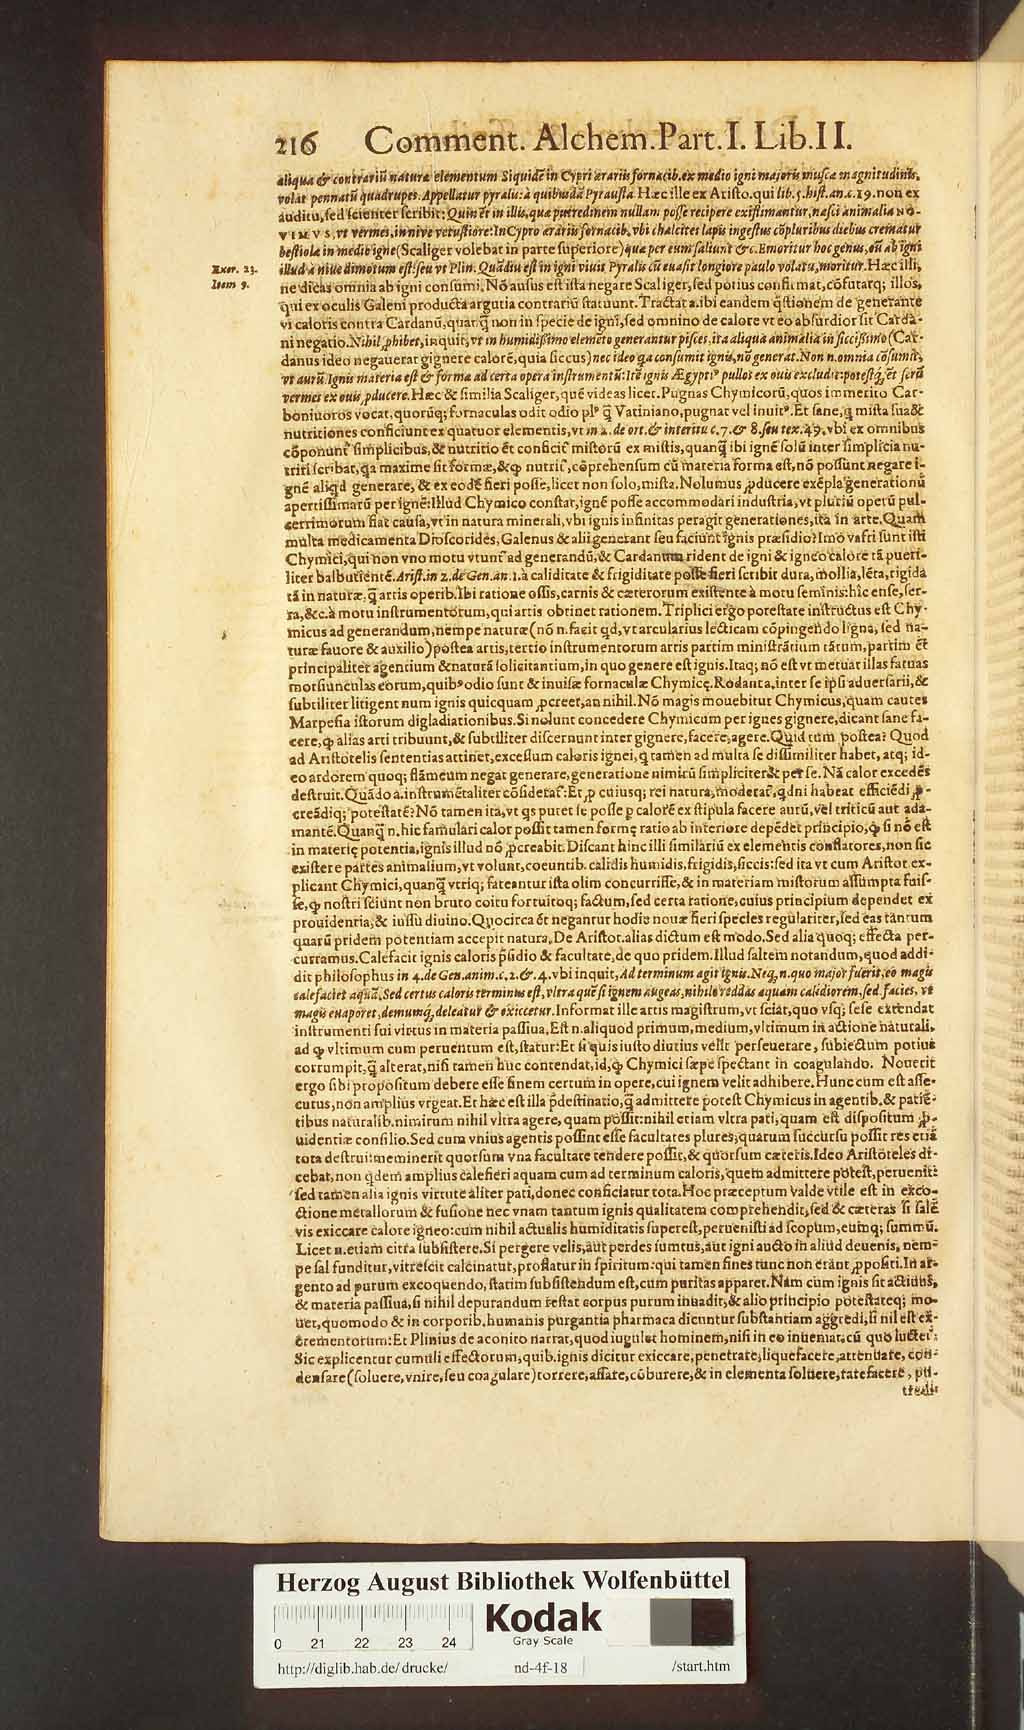 216 Comment. Alchem. Part. I. Lib. II.
aliqua & contrariũ naturæ elementum Siquidẽ in Cypri ærariis fornacib. ex medio igni majoris muscæ magnitudinis,
volat pennatũ quadrupes. Appellatur pyralis: à quibusdã Pyrausta. Hæc ille ex Aristo. qui lib. 5. hist. an. c. 19. non ex
auditu, sed scienter scribit: Quin ẽt in illis, quæ putredinem nullam posse recipere existimantur, nasci animalia NO-
VIMVS, vt vermes, in nive vetustiore: In Cypro ærariis fornacib. vbi chalcites lapis ingestus cõpluribus diebus crematur
bestiolæ in medio igne (Scaliger volebat in parte superiore) quæ per eum saliunt &c. Emoritur hoc genus, cũ ab igni
Exer. 23. illud à niue dimotum est: seu vt Plin. Quãdiu est in igni viuit Pyralis cũ euasit longiore paulo volatu, moritur. Hæc illi,
Item 9. ne dicas omnia ab igni consumi. Nõ ausus est ista negare Scaliger, sed potius confirmat, cõfutarq; illos,
qui ex oculis Galeni producta argutia contrariũ statuunt. Tractat a. ibi eandem q̃stionem de generante
vi caloris contra Cardanũ, quãq̃ non in specie de igni, sed omnino de calore vt eo absurdior sit Carda-
ni negatio. Nihil ꝓhibet, inquit, vt in humidissimo elemento generantur pisces, ita aliqua animalia in siccissimo (Car-
danus ideo negauerat gignere calorẽ, quia siccus) nec ideo qa consumit ignis, nõ generat. Non n. omnia cõsumit,
vt aurũ. Ignis materia est & forma ad certa opera instrumentũ: Itẽ ignis Ægyptiꝰ pullos ex ouis excludit: potestq; ẽt serũ
vermes ex ouis ꝓducere. Hæc & similia Scaliger, quẽ videas licet. Pugnas Chymicorũ, quos immerito Car-
boniuoros vocat, quorũq; fornaculas odit odio plꝰ q̃ Vatiniano, pugnat vel inuitꝰ. Et sane, q̃ mista sua &
nutritiones conficiunt ex quatuor elementis, vt in 2. de ort. & interitu c. 7. & 8. seu tex. 49. vbi ex omnibus
cõponunt᷑ simplicibus, & nutritio ẽt conficit᷑ mistorũ ex mistis, quanq̃ ibi ignẽ solũ inter simplicia nu-
triri scribat, qa maxime sit formæ, & ꝙ nutrit᷑, cõprehensum cũ materia forma est, nõ possunt negare i-
gnẽ aliqd generare, & ex eodẽ fieri posse, licet non solo, mista. Nolumus ꝓducere exẽpla generationũ
apertissimarũ per ignẽ: Illud Chymico constat, ignẽ posse accommodari industria, vt plurιũ operũ pul-
cerrimorum fiat causa, vt in natura minerali, vbi ignis infinitas peragit generationes, ita in arte. Quam
multa medicamenta Dioscorides, Galenus & alii generant seu faciunt ignis præsidio? Imo vafri sunt isti
Chymici, qui non vno motu vtunt᷑ ad generandũ, & Cardanum rident de igni & igneo calore tã pueri-
liter balbutientẽ. Arist. in 2. de Gen. an. 1. à caliditate & frigiditate posse fieri scribit dura, mollia, lẽta, rigida
tã in naturæ, q̃ artis operib. Ibi ratione ossis, carnis & cæterorum existente à motu seminis: hîc ense, ser-
ra, &c. à motu instrumentorum, qui artis obtinet rationem. Triplici ergo potestate instructus est Chy-
micus ad generandum, nempe naturæ (nõ n. facit qd, vt arcularius lecticam cõpingendo ligna, sed na-
turæ fauore & auxilio) postea artis, tertio instrumentorum artis partim ministrãtium tãtum, partim ẽt
principaliter agentium & naturã solicitantium, in quo genere est ignis. Itaq; nõ est vt metuat illas fatuas
morsiunculas eorum, quibꝰ odio sunt & inuisæ fornaculæ Chymicę. Rodant a. inter se ipsi aduersarii, &
subtiliter litigent num ignis quicquam ꝓcreet, an nihil. Nõ magis mouebitur Chymicus, quam cautes
Marpesia istorum digladiationibus. Si nolunt concedere Chymicum per ignes gignere, dicant sane fa-
cere, ꝙ alias arti tribuunt, & subtiliter discernunt inter gignere, facere, agere. Quid tum postea? Quod
ad Aristotelis sententias attinet, excessum caloris ignei, q̃ tamen ad multa se dissimiliter habet, atq; id-
eo ardorem quoq; flãmeum negat generare, generatione nimirũ simpliciter & per se. Nã calor excedẽs
destruit. Quãdo a. instrumẽtaliter cõsiderat᷑: Et ꝓ cuiusq; rei natura, moderat᷑, qdni habeat efficiẽdi ꝓ-
creãdiq; potestatẽ? Nõ tamen ita, vt qs putet se posse ꝑ calorẽ ex stipula facere aurũ, vel triticũ aut ada-
mantẽ. Quanq̃ n. hic famulari calor possit tamen formę ratio ab interiore depẽdet principio, ꝙ si nõ est
in materię potentia, ignis illud nõ ꝓcreabit. Discant hinc illi similariũ ex elementis conflatores, non sic
existere partes animalium, vt volunt, coeuntib. calidis humidis, frigidis, siccis: sed ita vt cum Aristot. ex-
plicant Chymici, quanq̃ vtriq; fateantur ista olim concurrisse, & in materiam mistorum assumpta fuis-
se, ꝙ nostri sciunt non bruto coitu fortuitoq; factum, sed certa ratione, cuius principium dependet ex
prouidentia, & iussu diuino. Quocirca ẽt negantur hodie nouæ fieri species regulariter, sed eas tantum
quarũ pridem potentiam accepit natura. De Aristot. alias dictum est modo. Sed alia quoq; effecta per-
curramus. Calefacit ignis caloris p̃sidio & facultate, de quo pridem. Illud saltem notandum, quod addi-
dit philosophus in 4. de Gen. anim. c. 2. & 4. vbi inquit, Ad terminum agit ignis. Neq; n. quo major fuerit, eo magis
calefaciet aquã. Sed certus caloris terminus est, vltra quẽ si ignem augeas, nihilo reddas aquam calidiorem, sed facies, vt
magis euaporet, demumq; deleatur & exiccetur. Informat ille artis magistrum, vt sciat, quo vsq; sese extendat
instrumenti sui virtus in materia passiua. Est n. aliquod primum, medium, vltimum in actione naturali,
ad ꝙ vltimum cum peruentum est, statur: Et si quis iusto diutius velit perseuerare, subiectum potius
corrumpit, q̃ alterat, nisi tamen huc contendat, id, ꝙ Chymici sæpe spectant in coagulando. Nouerit
ergo sibi propositum debere esse finem certum in opere, cui ignem velit adhibere. Hunc cum est asse-
cutus, non amplius vrgeat. Et hæc est illa p̃destinatio, q̃ admittere potest Chymicus in agentib. & patiẽ-
tibus naturalib. nimirum nihil vltra agere, quam possit: nihil etiam vltra pati, quam est dispositum ꝓ-
uidentiæ consilio. Sed cum vnius agentis possint esse facultates plures, quarum succursu possit res etiã
tota destrui: meminerit quorsum vna facultate tendere possit, & quorsum cæteris. Ideo Aristoteles di-
cebat, non qdem amplius calefieri aquam cum ad terminum caloris, quem admittere potest, peruenit:
sed tamen alia ignis virtute aliter pati, donec conficiatur tota. Hoc præceptum valde vtile est in exco-
ctione metallorum & fusione nec vnam tantum ignis qualitatem comprehendit, sed & cæteras Si salẽ
vis exiccare calore igneo: cum nihil actualis humiditatis superest, peruenisti ad scopum, eumq; summũ.
Licet n. etiam citra subsistere. Si pergere velis, aut perdes sumtus, aut igni aucto in aliud deuenis, nem-
pe sal funditur, vitrescit calcinatur, proflatur in spiritum: qui tamen fines tunc non erãnt ꝓpositi. In ar-
gento ad purum excoquendo, statim subsistendum est, cum puritas apparet. Nam cum ignis sit actiuus,
& materia passiua, si nihil depurandum restat corpus purum inuadit, & alio principio potestateq; mo-
uet, quomodo & in corporib. humanis purgantia pharmaca dicuntur substantiam aggredi, si nil est ex-
crementorum: Et Plinius de aconito narrat, quod iugulet hominem, nisi in eo inueniat, cũ quo luctet᷑:
Sic explicentur cumuli effectorum, quib. ignis dicitur exiccare, penetrare, liquefacere, attenuare, con-
densare (soluere, vnire, seu coagulare) torrere, assare, cõburere, & in elementa soluere, rarefacere, pu-
tredi-
Herzog August Bibliothek Wolfenbüttel
Kodak
Gray Scale
0 21 22 23 24
http://diglib.hab.de/drucke/ nd-4f-18 /start.htm